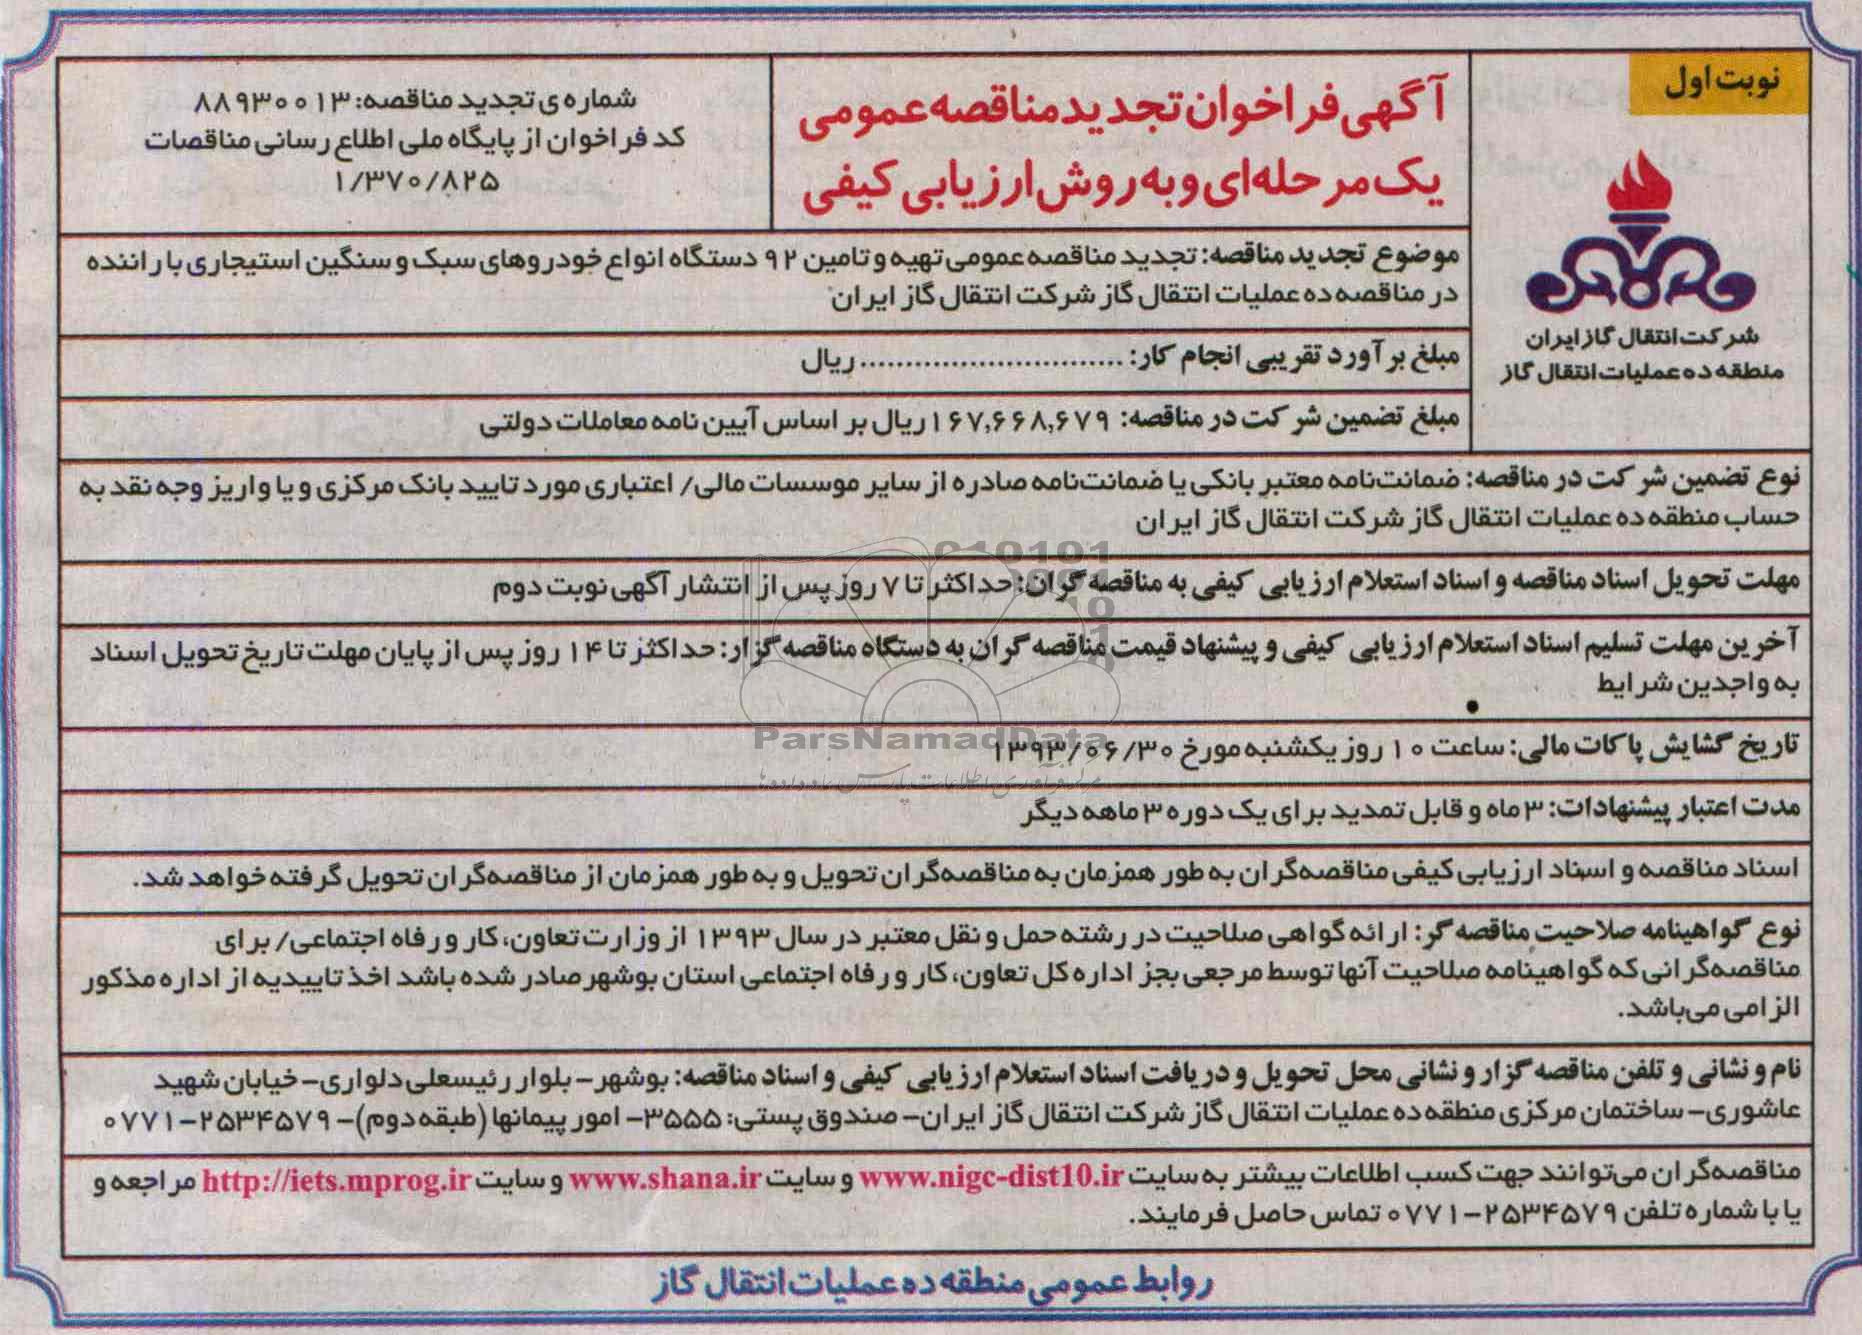 نوبت اول
آگهی فراخوان تجدید مناقصه عمومی
یک مرحله‌ای و به روش ارزیابی کیفی
شماره‌ی تجدید مناقصه: ۸۸۹۳۰۰۱۳
کد فراخوان از پایگاه ملی اطلاع رسانی مناقصات
۱/۳۷۰/۸۲۵
شرکت انتقال گاز ایران
منطقه ده عملیات انتقال گاز
موضوع تجدید مناقصه: تجدید مناقصه عمومی تهیه و تامین ۹۲ دستگاه انواع خودروهای سبک و سنگین استیجاری با راننده
در مناقصه ده عملیات انتقال گاز شرکت انتقال گاز ایران
مبلغ برآورد تقریبی انجام کار: .............................. ریال
مبلغ تضمین شرکت در مناقصه: ۱۶۷,۶۶۸,۶۷۹ ریال بر اساس آیین نامه معاملات دولتی
نوع تضمین شرکت در مناقصه: ضمانت‌نامه معتبر بانکی یا ضمانت‌نامه صادره از سایر موسسات مالی/ اعتباری مورد تایید بانک مرکزی و یا واریز وجه نقد به
حساب منطقه ده عملیات انتقال گاز شرکت انتقال گاز ایران
مهلت تحویل اسناد مناقصه و اسناد استعلام ارزیابی کیفی به مناقصه گران: حداکثر تا ۷ روز پس از انتشار آگهی نوبت دوم
آخرین مهلت تسلیم اسناد استعلام ارزیابی کیفی و پیشنهاد قیمت مناقصه گران به دستگاه مناقصه گزار: حداکثر تا ۱۴ روز پس از پایان مهلت تاریخ تحویل اسناد
به واجدین شرایط
تاریخ گشایش پاکات مالی: ساعت ۱۰ روز یکشنبه مورخ ۱۳۹۳/۰۶/۳۰
ParsNamadData
مرکز فرآوری اطلاعات پارس نماد داده‌ها
مدت اعتبار پیشنهادات: ۳ ماه و قابل تمدید برای یک دوره ۳ ماهه دیگر
اسناد مناقصه و اسناد ارزیابی کیفی مناقصه‌گران به طور همزمان به مناقصه‌گران تحویل و به طور همزمان از مناقصه‌گران تحویل گرفته خواهد شد.
نوع گواهینامه صلاحیت مناقصه گر: ارائه گواهی صلاحیت در رشته حمل و نقل معتبر در سال ۱۳۹۳ از وزارت تعاون، کار و رفاه اجتماعی/ برای
مناقصه‌گرانی که گواهینامه صلاحیت آنها توسط مرجعی بجز اداره کل تعاون، کار و رفاه اجتماعی استان بوشهر صادر شده باشد اخذ تاییدیه از اداره مذکور
الزامی می‌باشد.
نام و نشانی و تلفن مناقصه گزار و نشانی محل تحویل و دریافت اسناد استعلام ارزیابی کیفی و اسناد مناقصه: بوشهر- بلوار رئیسعلی دلواری- خیابان شهید
عاشوری- ساختمان مرکزی منطقه ده عملیات انتقال گاز شرکت انتقال گاز ایران- صندوق پستی: ۳۵۵۵- امور پیمانها (طبقه دوم)- ۲۵۳۴۵۷۹-۰۷۷۱
مناقصه‌گران می‌توانند جهت کسب اطلاعات بیشتر به سایت www.nigc-dist10.ir و سایت www.shana.ir و سایت http://iets.mprog.ir مراجعه و
یا با شماره تلفن ۲۵۳۴۵۷۹-۰۷۷۱ تماس حاصل فرمایند.
روابط عمومی منطقه ده عملیات انتقال گاز